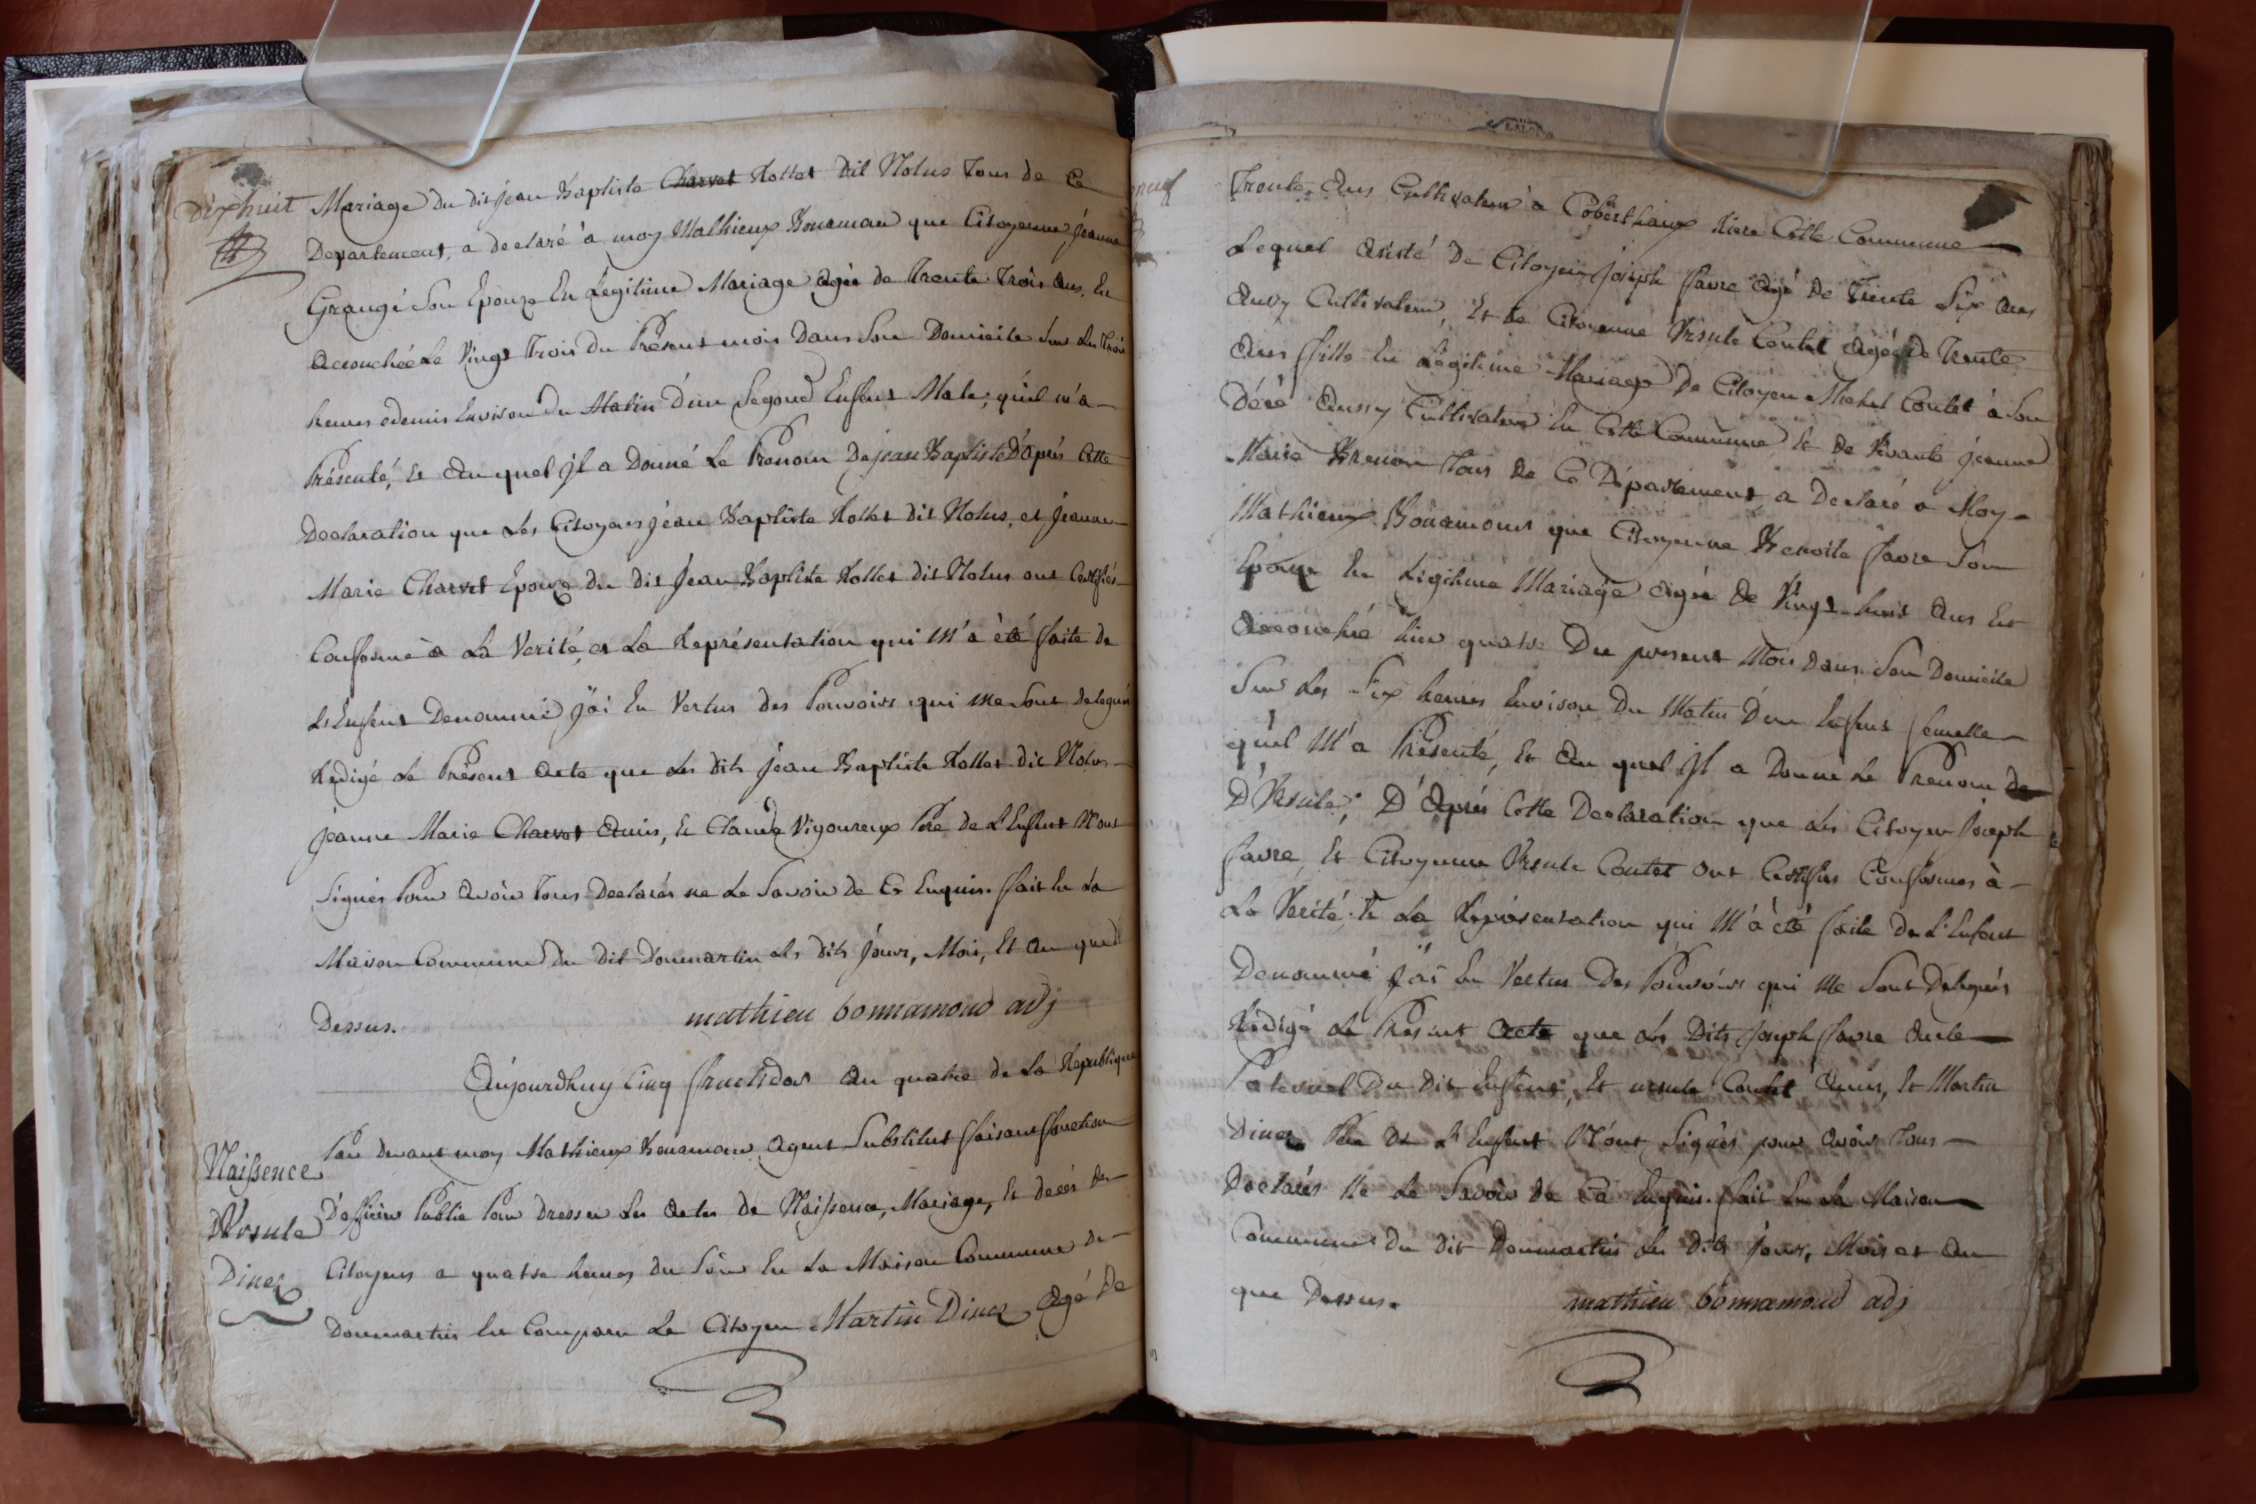 Dixhuit
Mariage du dit Jean Baptiste Charvet Rollet dit Nolus Tous de Ce
Departement, a declaré à moy Mathieux Bonamour que Citoyenne Jeanne
Grangé Son Epouze En Légitime Mariage agée de Trente Trois ans, Est
accouchée Le Vingt Trois du Présent mois Dans Son Domicile Sur Les Trois
heures edemis Environ du Matin D'un Segond Enfant Male, qu'il m'a
Présenté, Et Au quel Jl a Donné Le Prenom De Jean Baptiste D'après Cette
Declaration que Les Citoyens Jean Baptiste Rollet dit Nolus, et Jeanne
Marie Charvet Epouze du dit Jean Baptiste Rollet dit Nolus ont Certifiés
Conforme à La Verité, et La Représentation qui M'a été faite de
L'Enfent Denommé J'ai En Vertus des Pouvoirs qui me Sont Delegués
Redigé Le Présent Acte que Les dits Jean Baptiste Rollet dit Nolus
Jeanne Marie Charvet Amis, Et Claude Vigoureux Pere de L'Enfent N'ont
Signés Pour avoir Tous Declarés ne Le Savoir de Ce Enquis. fait En La
Maison Commune du dit Dommartin Les dits Jours, Mois, Et an que
Dessus.
mathieu bonnamoud adj
Aujourdhuy Cinq fructidor an quatre de La Republique
Par devant moy Mathieux Bonamour Agent Substitut faisant fonction
Naissence
D'officier Public Pour Dresser Les Actes de Naissence, Mariage, Et decés des
d'Ursule
Citoyens a quatre heures du Soir En La Maison Commune de
Dinez
Dommartin Est Comparu Le Citoyen Martin Dinez Agé De
Trente Ans Cultivateur à Riere Cette Commune
Lequel Assisté De Citoyen Joseph favre Agé De Trente Six ans
Aussy Cultivateur, Et de Citoyenne Ursule Contet Agée De Trente
Ans fille En Légitime Mariage De Citoyen Michel Contet à Son
Décé Aussy Cultivateur En Cette Commune Et de Vivante Jeanne
Marie Tous de Ce Département, a Declaré a Moy
Mathieux Bonamour que Citoyenne Benoite favre Son
Epouze En Légitime Mariage Agée De Vingt huit Ans Est
Accouchée hier quatre Du present Mois Dans Son Domicile
Sur Les Six heures Environ Du Matin D'un Enfent femelle
qu'il M'a Présenté, Et Au quel Jl a Donné Le Prenom de
D'Ursule; D'Après Cette Declaration que Les Citoyen Joseph
favre, Et Citoyenne Ursule Contet Ont Certifiés Conformes à
La Verité Et La Représentation qui M'a été faite De L'Enfent
Denommé J'ai En Vertus Des Pouvoirs qui Me Sont Delegués
Redigé Le Présent Acte que Les Dits Joseph favre Oncle
Paternel Du Dit Enfent, Et ursule Contet Amis, Et Martin
Dinez Pere De L'Enfent N'ont Signés pour Avoir Tous
Declarés Ne Le Savoir De Ce Enquis. fait En La Maison
Commune du dit Dommartin Les Dits Jours, Mois et An
que Dessus.
mathieu bonnamoud adj